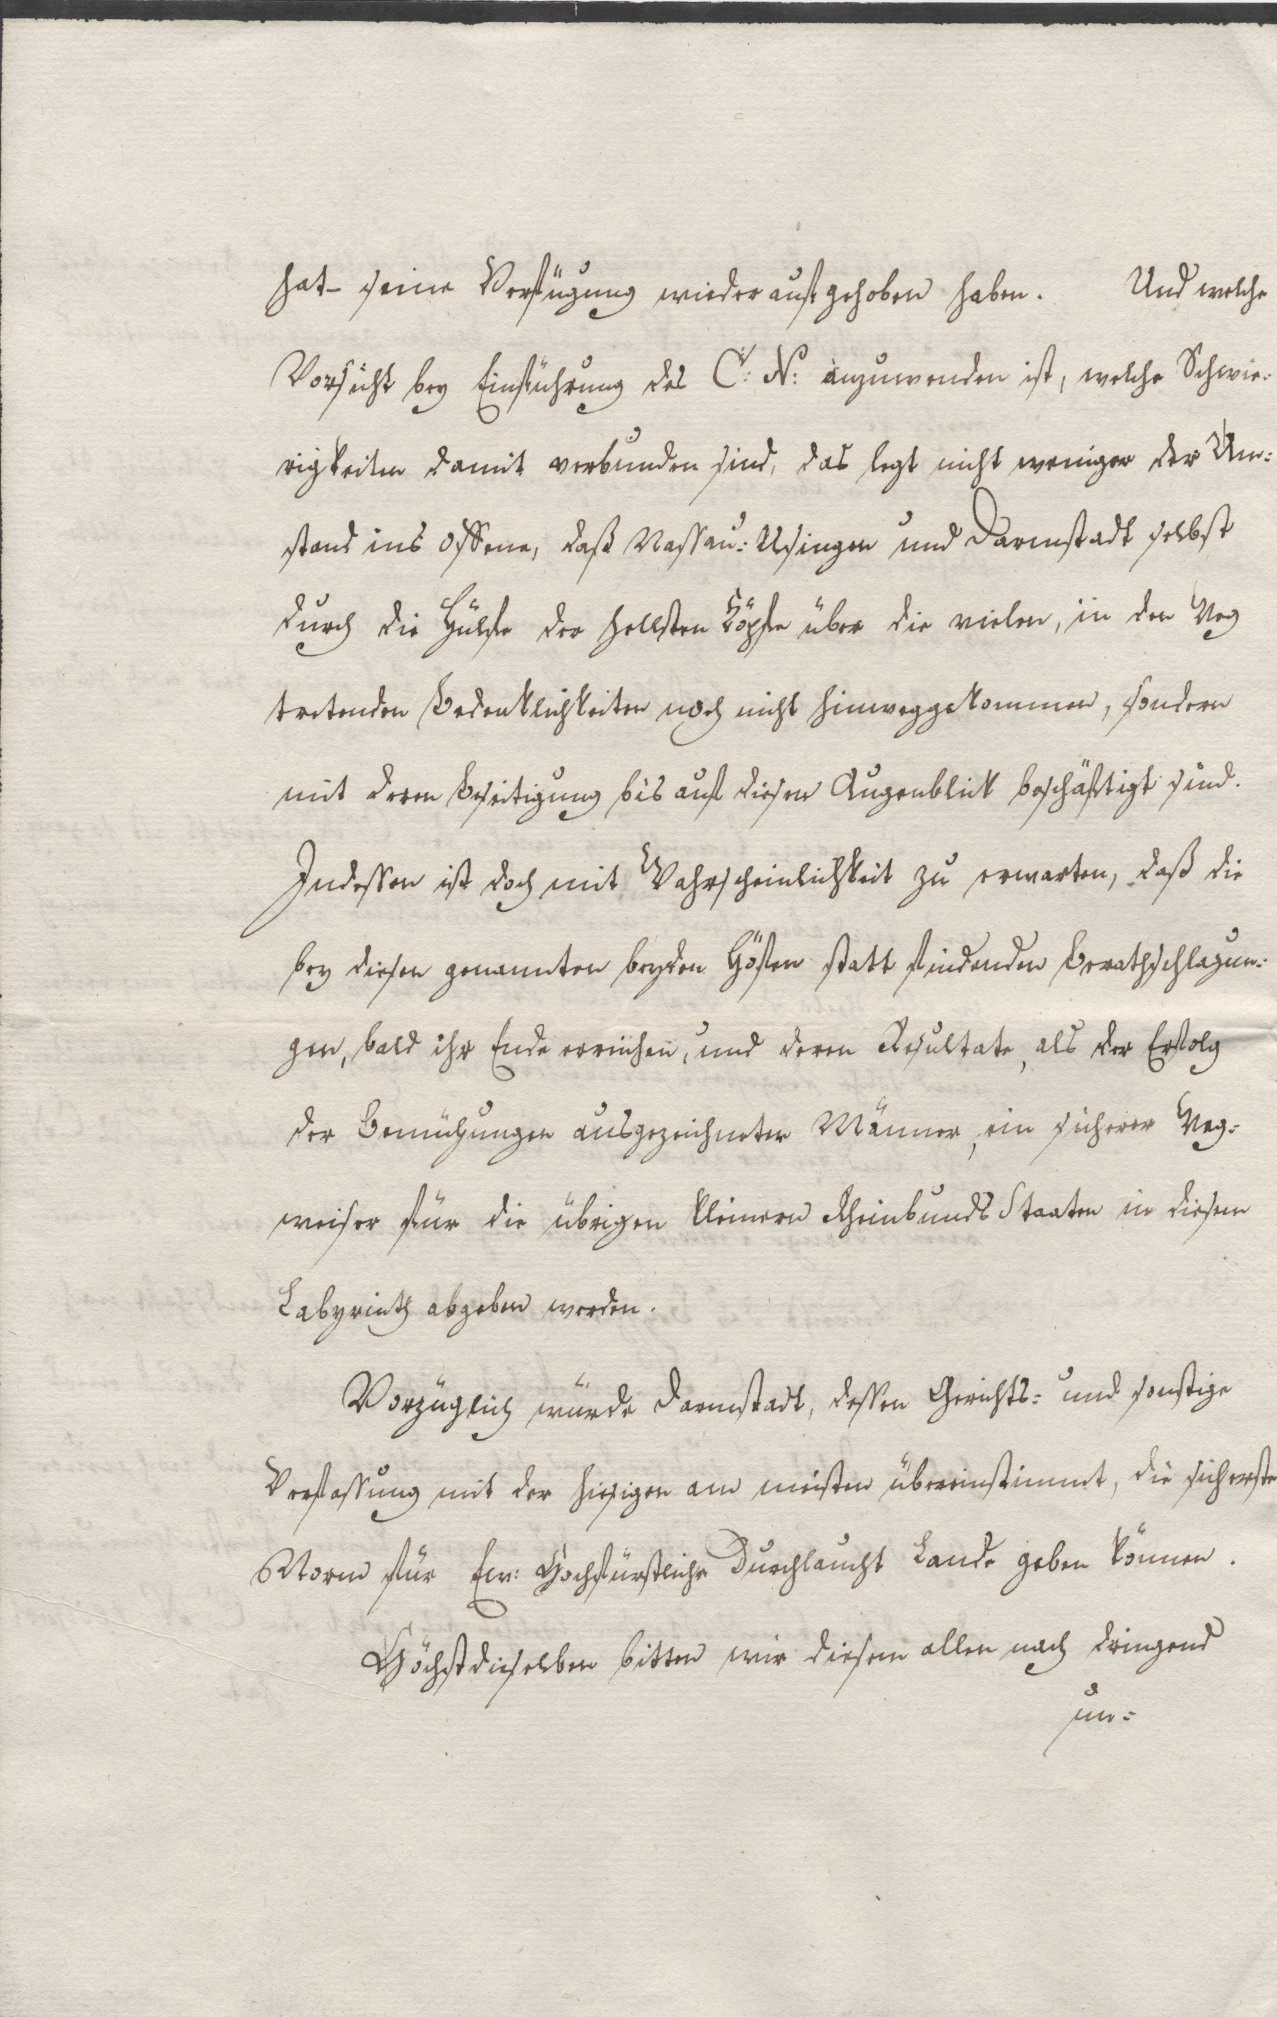 hat- seine Verfügung wieder aufgehoben haben. Und welche
Vorsicht bey Einführung des C: N: anzuwenden ist, welche Schwie:
rigkeiten damit verbunden sind, das legt nicht weniger der Um:
stand ins Offene, daß Nassau: Usingen und Darmstadt selbst
durch die Hülfe der hellsten Köpfe über die vielen, in den Weg
tretenden Bedenklichkeiten noch nicht hinweggekommen, sondern
mit deren Beseitigung bis auf diesen Augenblick beschäftigt sind.
Indessen ist doch mit Wahrscheinlichkeit zu erwarten, daß die
bey diesen genannten beyden Höfen statt findenden Berathschlagun:
gen, bald ihr Ende erreichen, und deren Resultate, als der Erfolg
der Bemühungen ausgezeichneter Männer, ein sicherer Weg:
weiser für die übrigen kleinern Rheinbunds Staaten in diesem
Labyrinth abgeben werden.
Vorzüglich würde Darmstadt, dessen Gerichts: und sonstige
Verfassung mit der hiesigen am meisten übereinstimmt, die sicherste
Norm für Ew: Hochfürstliche Durchlaucht Lande geben können.
Höchstdieselben bitten wir diesem allen nach dringend
un: